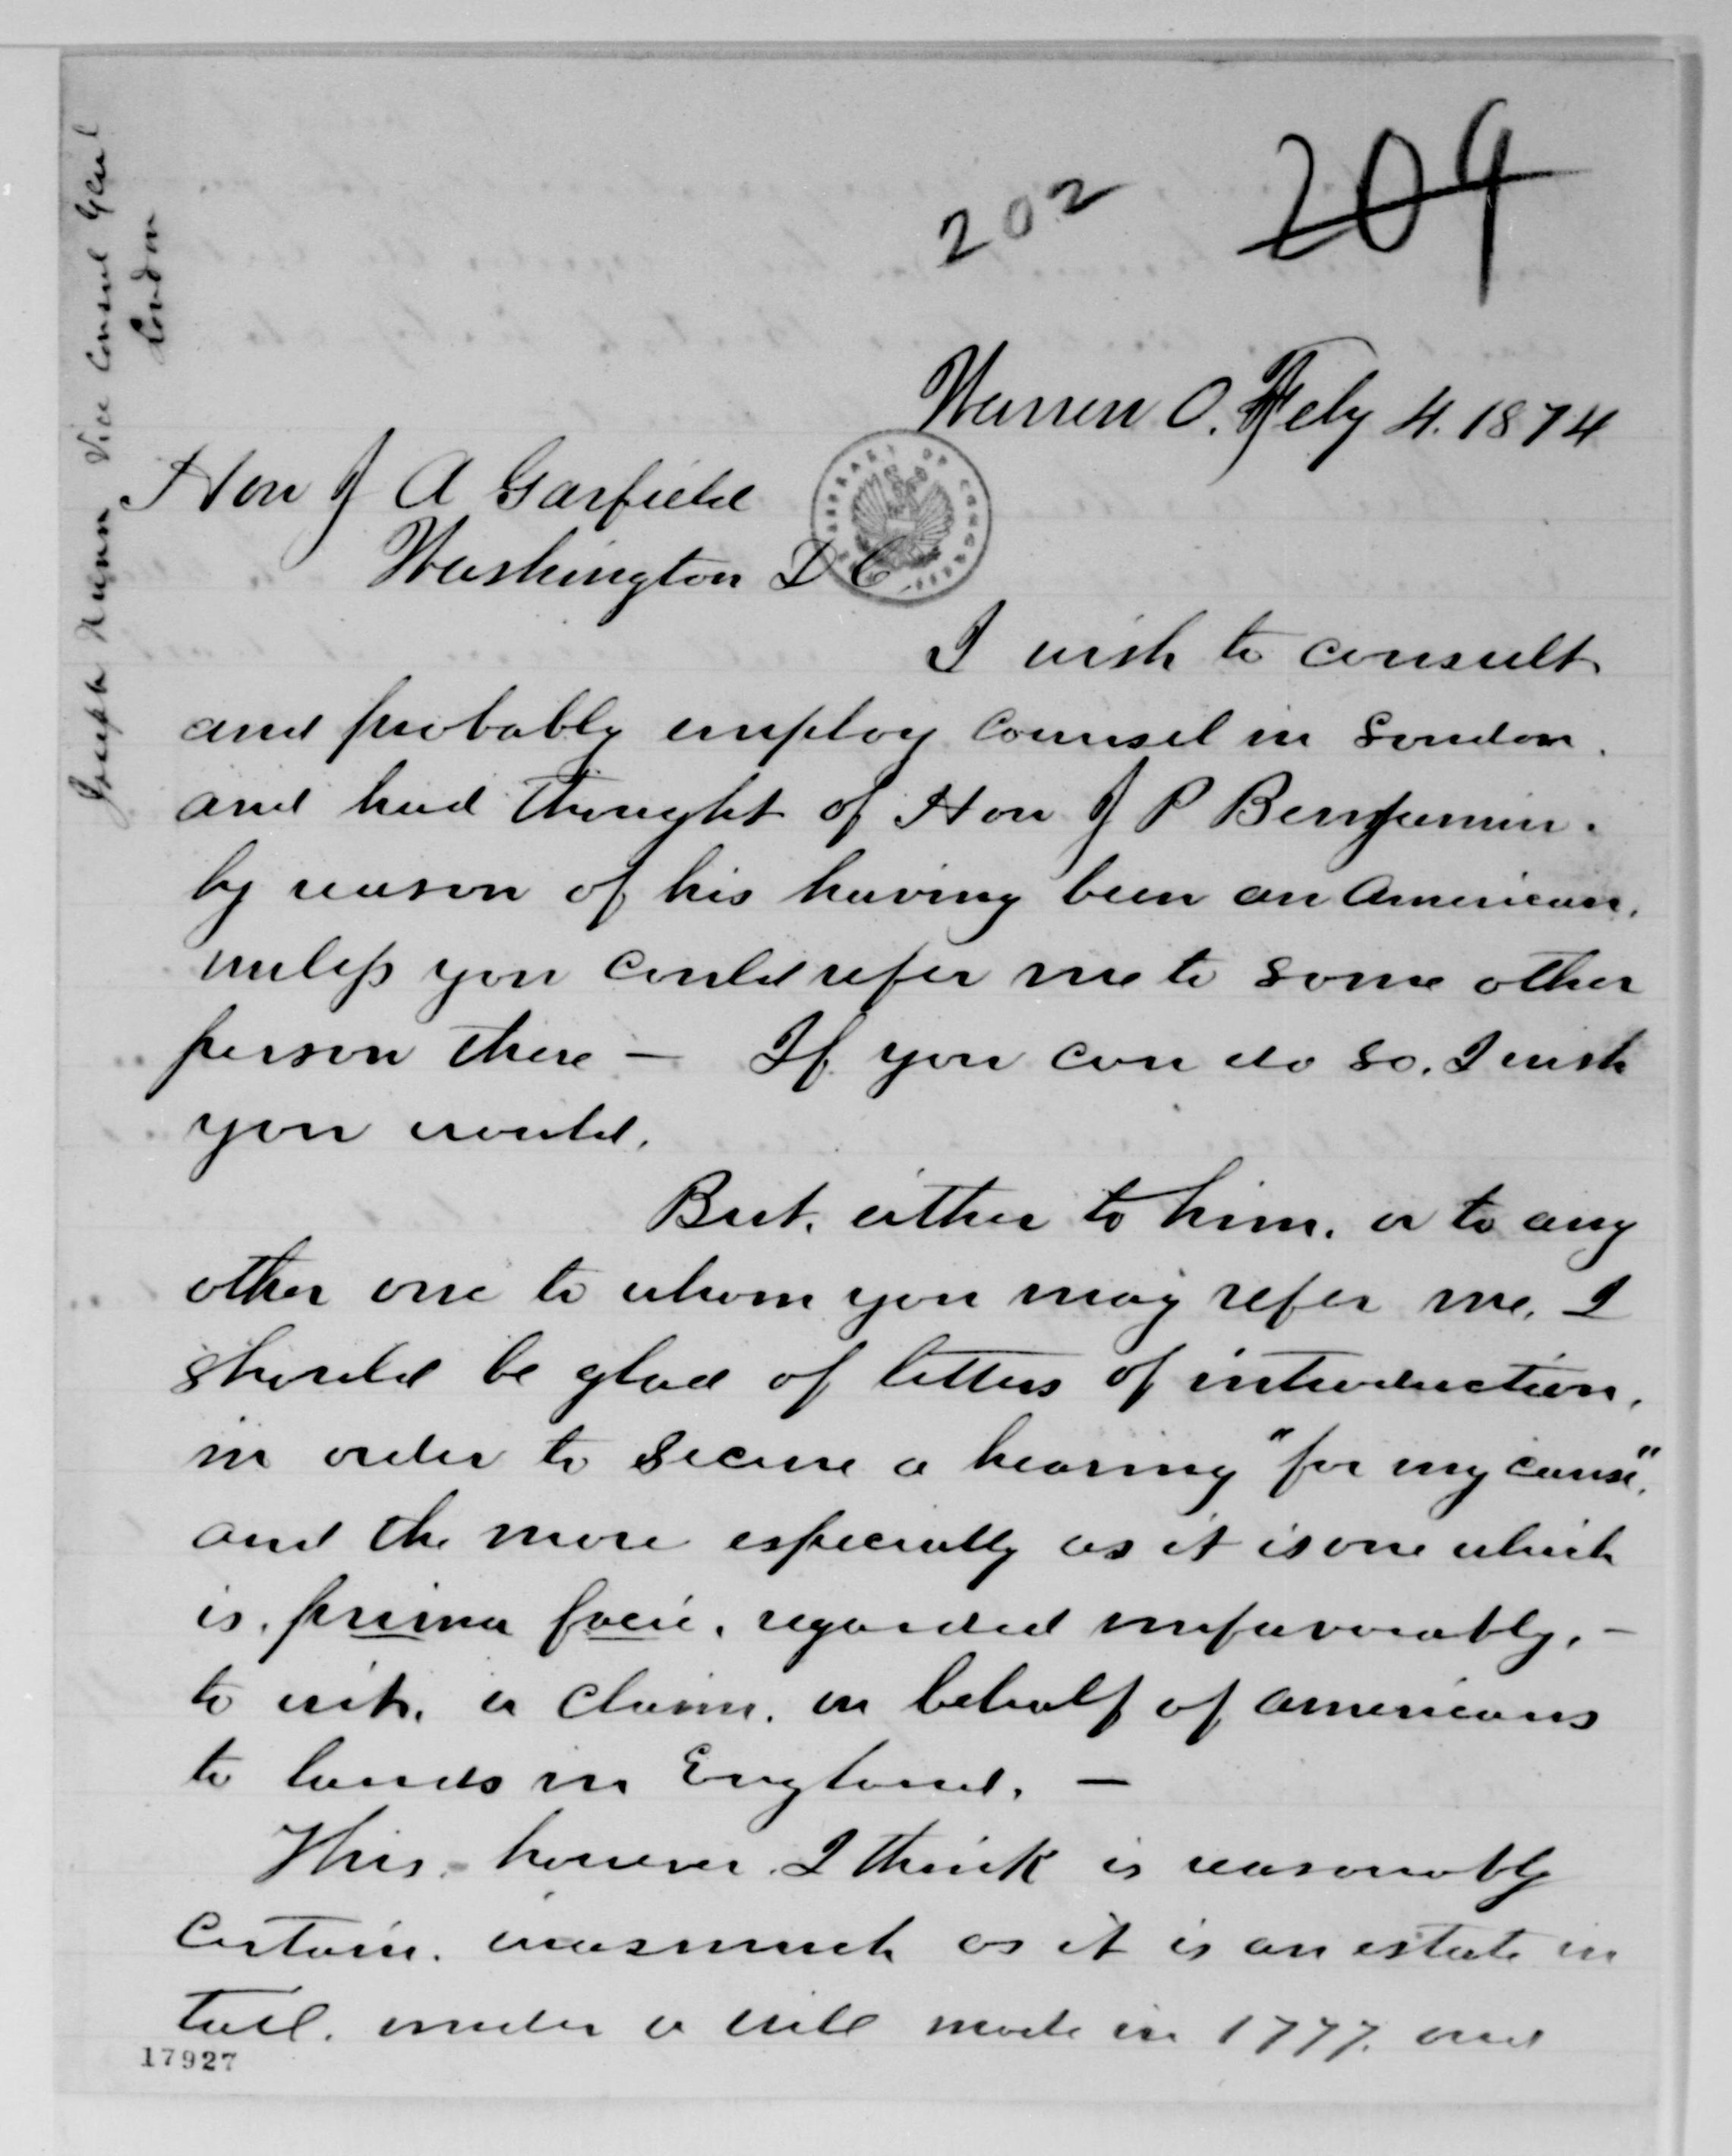 202 204
Warren O. Feby 4. 1874
Hon J A Garfield
Washington D C
LIBRARY OF CONGRESS
I wish to consult
and probably employ counsel in London.
and had thought of Hon J P Benjamin.
by reason of his having been an American.
unless you could refer me to some other
person there — If you can do so. I wish
you would.
But. either to him. or to any
other one to whom you may refer me. I
should be glad of letters of introduction.
in order to secure a hearing "for my cause".
and the more especially as it is one which
is. prima facie. regarded unfavorably. —
to wit. a claim. on behalf of americans
to lands in England. —
This. however. I think is reasonably
certain. inasmuch as it is an estate in
tail. under a will made in 1777. and
17927
Joseph Nunn Vice Consul Genl
London